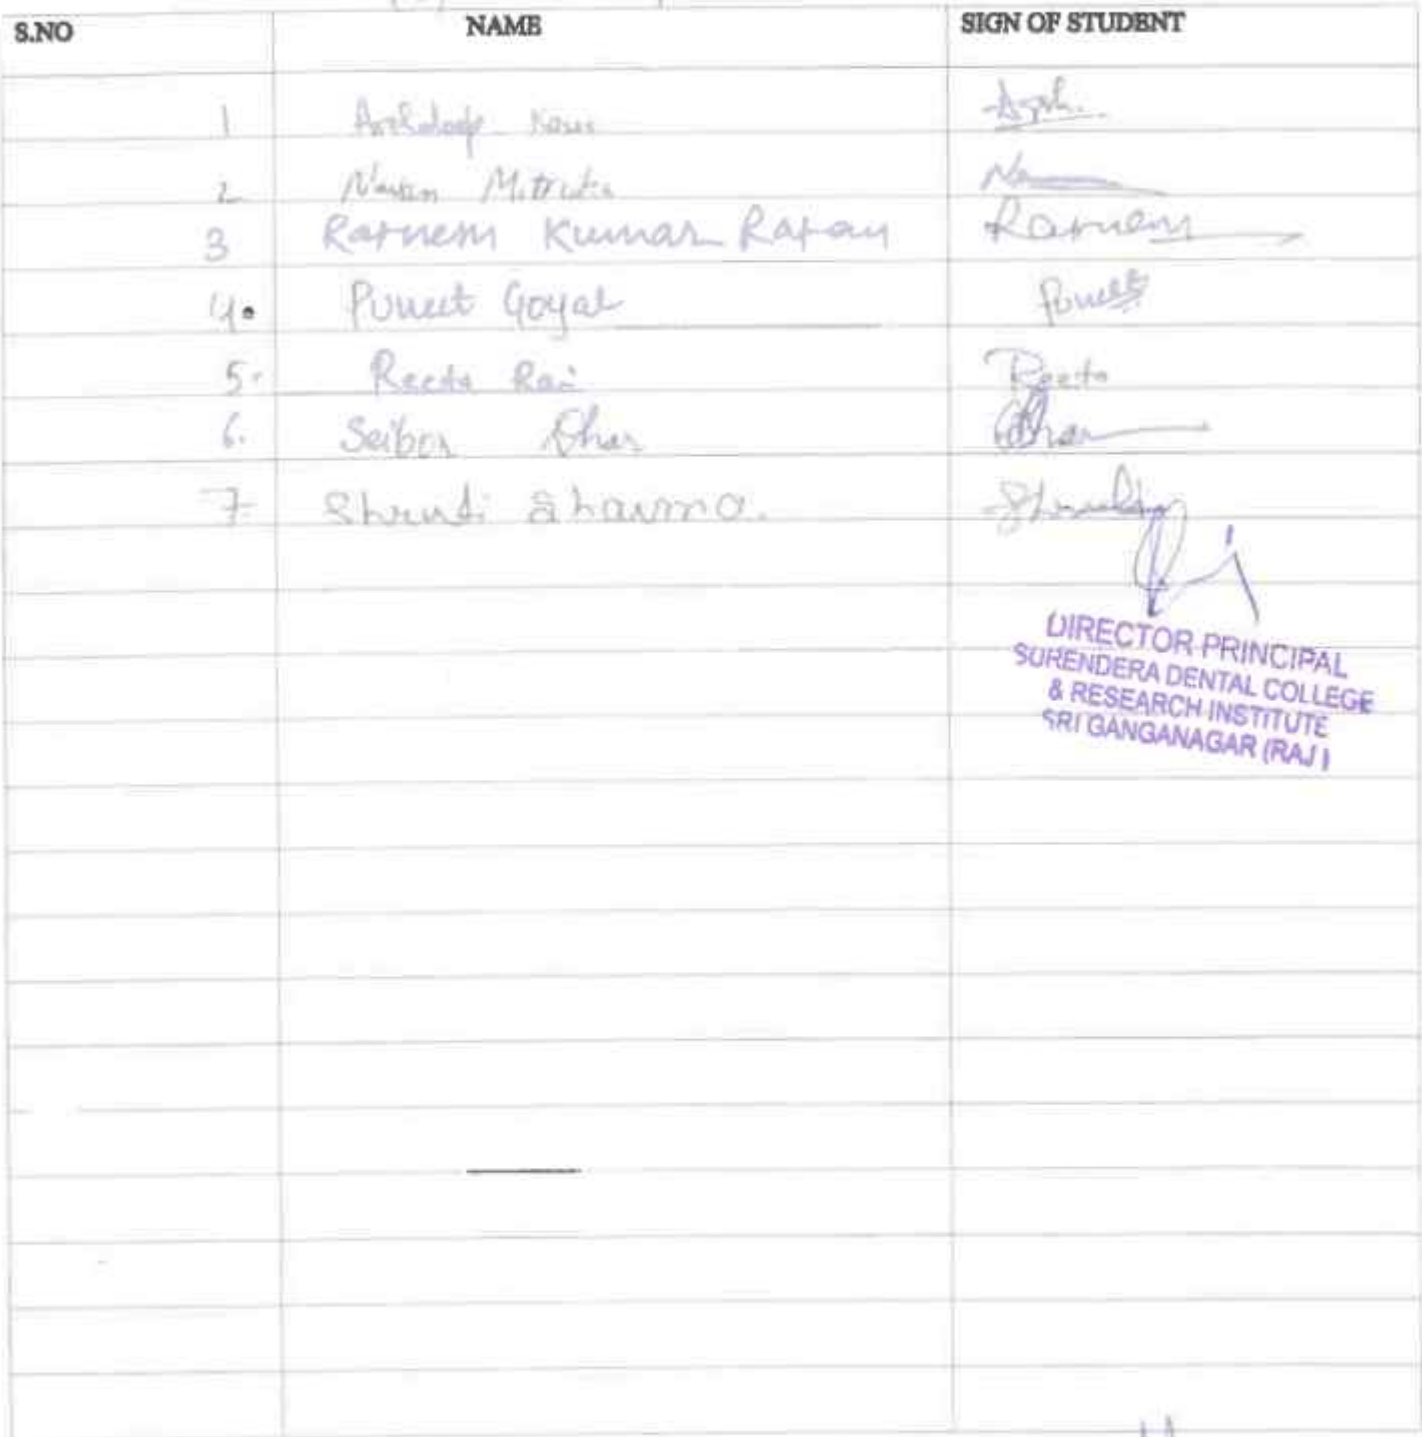 S.NO NAME SIGN OF STUDENT
1 Arshdeep Kaur Arsh.
2 Navin Mitruka
3 Ratnesh Kumar Ratan Ratnesh
4. Puneet Goyal Puneet
5. Reeta Rai Reeta
6. Seibor Dhar Dhar
7 Shruti Sharma.
DIRECTOR PRINCIPAL
SURENDERA DENTAL COLLEGE
& RESEARCH INSTITUTE
SRI GANGANAGAR (RAJ)